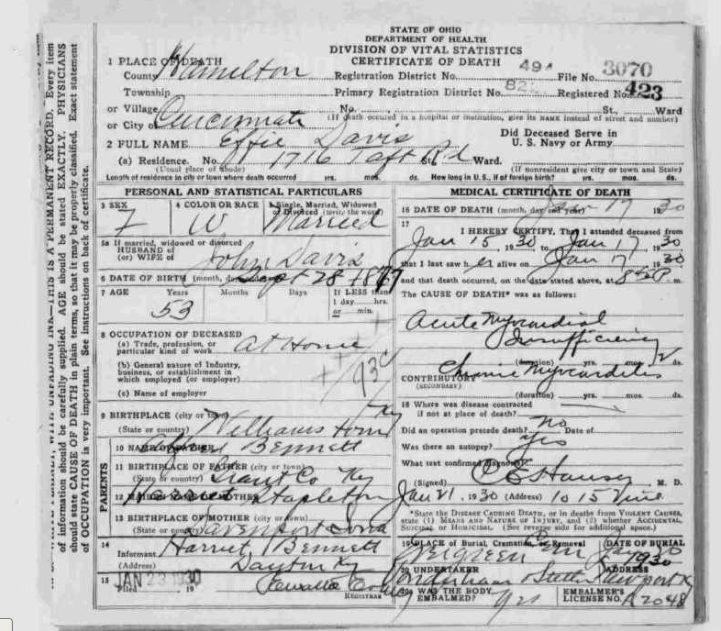 STATE OF OHIO
DEPARTMENT OF HEALTH
DIVISION OF VITAL STATISTICS
CERTIFICATE OF DEATH
1 PLACE OF DEATH
County Hamilton Registration District No. 494 File No. 3070
Township Primary Registration District No. Registered No. 423
or Village No. St., Ward
or City of Cincinnati (If death occurred in a hospital or institution, give its NAME instead of street and number)
2 FULL NAME Effie Davis Did Deceased Serve in U. S. Navy or Army
(a) Residence. No. 1716 Taft Rd St., Ward.
(Usual place of abode) (If nonresident give city or town and State)
Length of residence in city or town where death occurred yrs. mos. ds. How long in U. S., if of foreign birth? yrs. mos. ds.
PERSONAL AND STATISTICAL PARTICULARS
3 SEX 4 COLOR OR RACE 5 Single, Married, Widowed or Divorced (write the word)
F W Married
5a If married, widowed or divorced
HUSBAND of
(or) WIFE of John Davis
6 DATE OF BIRTH (month, day Sept 28
7 AGE Years Months Days If LESS than
1 day hrs.
or min.
53
8 OCCUPATION OF DECEASED
(a) Trade, profession, or
particular kind of work At Home
(b) General nature of Industry,
business, or establishment in
which employed (or employer)
(c) Name of employer
9 BIRTHPLACE (city or town) Williamstown Ky
(State or country)
10 NAME OF FATHER Bennett
11 BIRTHPLACE OF FATHER (city or town) Grant Co Ky
12 MAIDEN NAME OF MOTHER Harriet Stapleton
13 BIRTHPLACE OF MOTHER (city or town)
(State or country) Davenport Iowa
PARENTS
14
Informant Harriet Bennett
Dayton Ky
15
Filed JAN 23 1930
REGISTRAR
MEDICAL CERTIFICATE OF DEATH
16 DATE OF DEATH (month, day and year) Jan 17 1930
17
I HEREBY CERTIFY, That I attended deceased from
Jan 15 1930 to Jan 17, 1930
that I last saw her alive on Jan 17 1930
and that death occurred, on the date stated above, at m.
The CAUSE OF DEATH* was as follows:
Acute Myocardial
Insufficiency
(duration) yrs. mos. 2 ds.
Chronic Myocarditis
CONTRIBUTORY
(SECONDARY)
(duration) yrs. mos. ds.
18 Where was disease contracted
if not at place of death?
Did an operation precede death? No Date of
Was there an autopsy? Yes
What test confirmed diagnosis?
(Signed) M. D.
Jan 21, 1930 (Address) 1015 Vine
*State the DISEASE CAUSING DEATH, or in deaths from VIOLENT CAUSES,
state (1) MEANS AND NATURE OF INJURY, and (2) whether ACCIDENTAL,
SUICIDAL, or HOMICIDAL. (See reverse side for additional space.)
19 PLACE OF Burial, Cremation or Removal DATE OF BURIAL
Evergreen Cem Jan 20 1930
20 UNDERTAKER ADDRESS
Newport Ky
WAS THE BODY
EMBALMED? yes EMBALMER'S
LICENSE NO. A2048
THIS IS A PERMANENT RECORD. Every item
of information should be carefully supplied. AGE should be stated EXACTLY. PHYSICIANS
should state CAUSE OF DEATH in plain terms, so that it may be properly classified. Exact statement
of OCCUPATION is very important. See instructions on back of certificate.